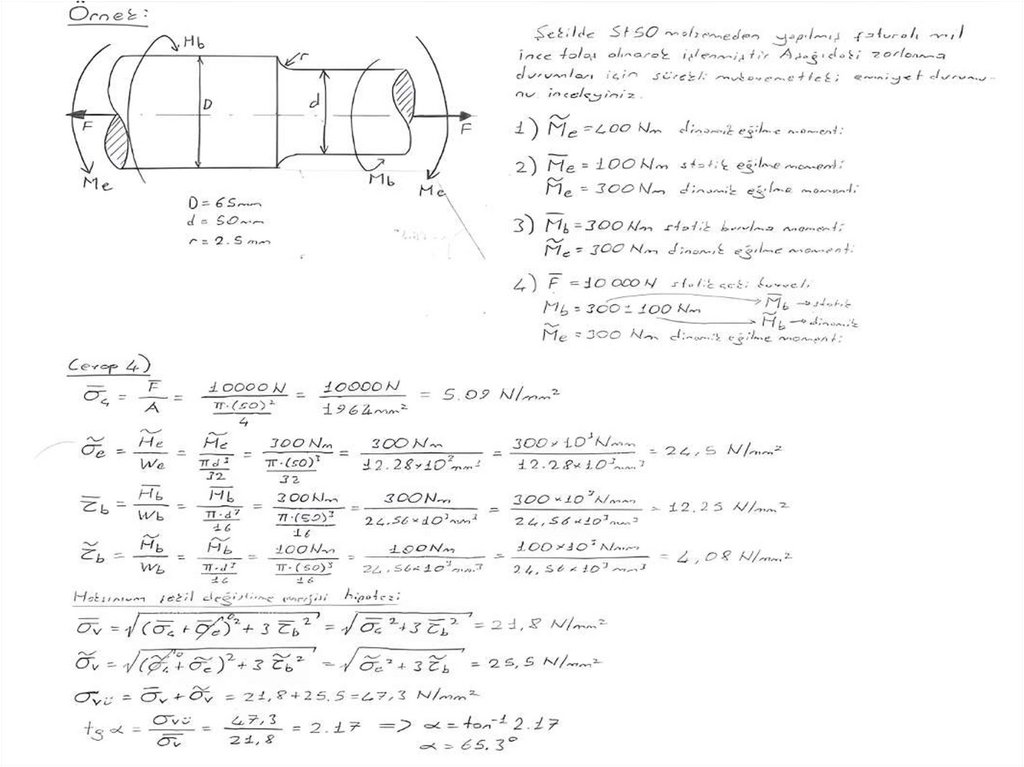 Örnek:
Mb
r
D
d
F
F
Me
Mb
Me
D = 65mm
d = 50mm
r = 2.5 mm
Şekilde St50 malzemeden yapılmış faturalı mil
ince talaş alınarak işlenmiştir Aşağıdaki zorlanma
durumları için sürekli mukavemetteki emniyet durumu-
nu inceleyiniz.
1) M̃e = 400 Nm dinamik eğilme momenti
2) M̄e = 100 Nm statik eğilme momenti
M̃e = 300 Nm dinamik eğilme momenti
3) M̄b = 300 Nm statik burulma momenti
M̃e = 300 Nm dinamik eğilme momenti
4) F̄ = 10 000 N statik çeki kuvveti
Mb = 300 ± 100 Nm → M̄b → statik
→ M̃b → dinamik
M̃e = 300 Nm dinamik eğilme momenti
Cevap 4)
σ̄ç = F̄/A = 10000N/(π·(50)²/4) = 10000N/1964mm² = 5.09 N/mm²
σ̃e = M̃e/We = M̃e/(πd³/32) = 300 Nm/(π·(50)³/32) = 300 Nm/12.28×10³mm³ = 300×10³Nmm/12.28×10³mm³ = 24,5 N/mm²
τ̄b = M̄b/Wb = M̄b/(π·d³/16) = 300Nm/(π·(50)³/16) = 300Nm/24,56×10³mm³ = 300×10³Nmm/24,56×10³mm³ = 12.25 N/mm²
τ̃b = M̃b/Wb = M̃b/(π·d³/16) = 100Nm/(π·(50)³/16) = 100Nm/24,56×10³mm³ = 100×10³Nmm/24,56×10³mm³ = 4,08 N/mm²
Maksimum şekil değiştirme enerjisi hipotezi
σ̄v = √((σ̄ç + σ̄e⁰)² + 3 τ̄b²) = √(σ̄ç² + 3 τ̄b²) = 21,8 N/mm²
σ̃v = √((σ̃ç⁰ + σ̃e)² + 3 τ̃b²) = √(σ̃e² + 3 τ̃b²) = 25,5 N/mm²
σvü = σ̄v + σ̃v = 21,8 + 25.5 = 47,3 N/mm²
tg α = σvü/σ̄v = 47,3/21,8 = 2.17 => α = tan⁻¹ 2.17
α = 65.3°